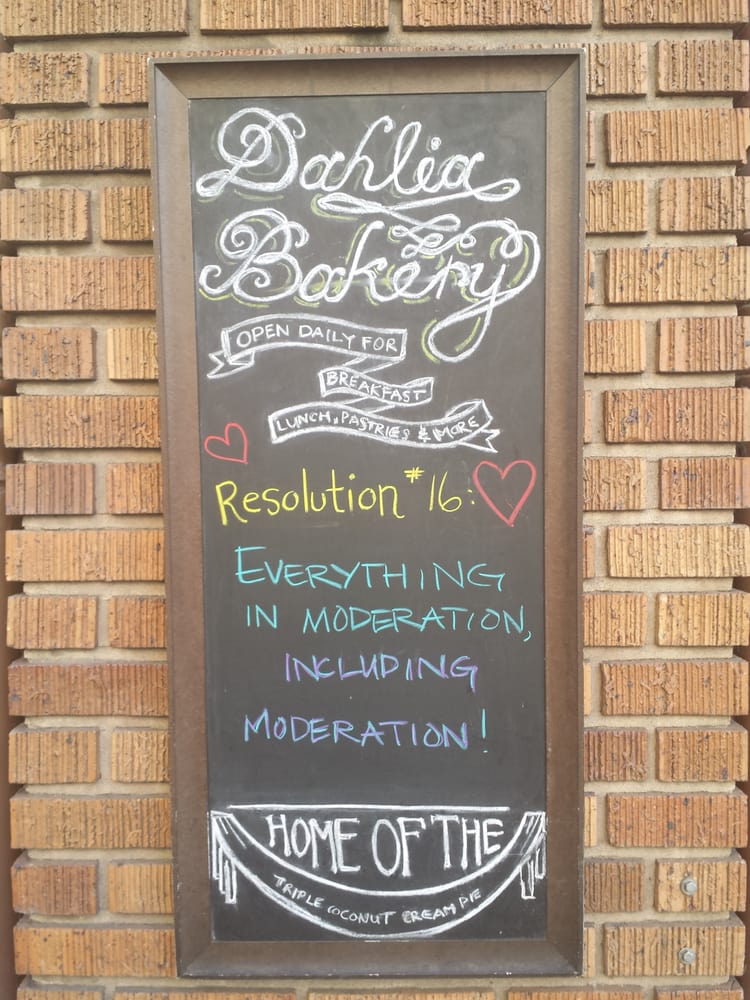 Dahlia
Bakery
OPEN DAILY FOR
BREAKFAST
LUNCH, PASTRIES & MORE
Resolution #16:
EVERYTHING
IN MODERATION,
INCLUDING
MODERATION!
HOME OF THE
TRIPLE COCONUT CREAM PIE